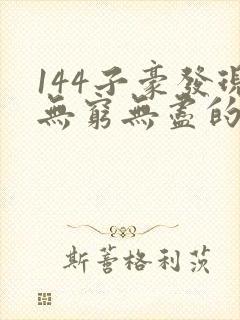 144子豪發現
無窮無盡的
斯蓍格利茨